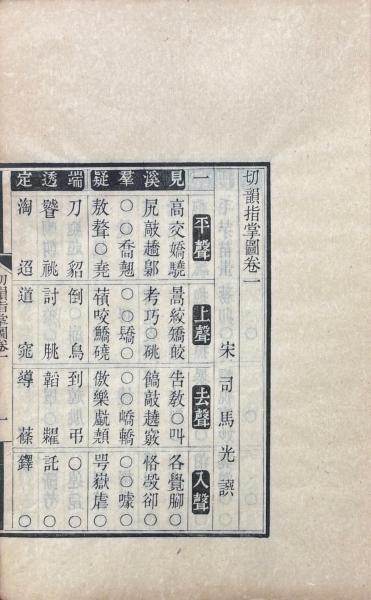 切韻指掌圖卷一
宋司馬光譔
一 平聲 上聲 去聲 入聲
見 高交嬌驍 暠絞矯皎 告教○叫 各覺腳○
溪 尻敲趫鄡 考巧○磽 敲趬竅 恪㱿卻○
羣 ○○喬翹 ○○驕○ ○○嶠轎 ○○噱○
疑 敖聱○堯 咬 傲樂 咢嶽虐○
端 刀○○貂 倒○○鳥 到○○弔 ○○○○
透 祧 討 朓 韜 糶 託 ○
定 淘 迢 道 窕 導 蓧 鐸 ○
切韻指掌圖卷一